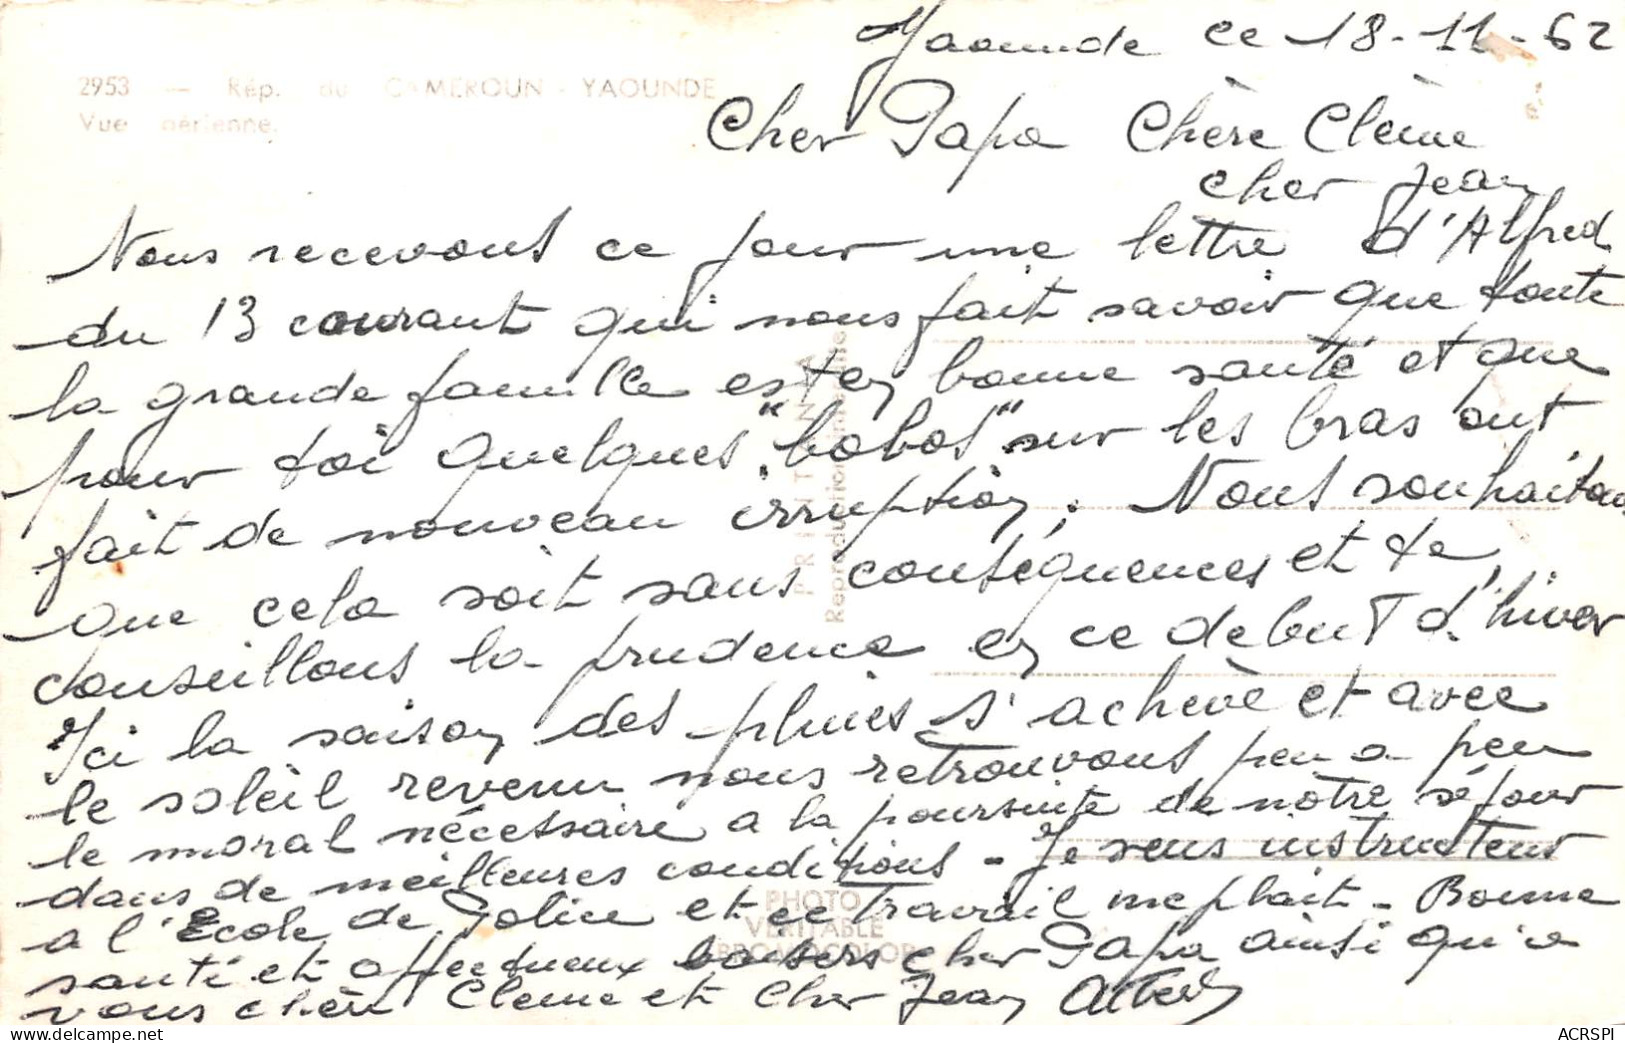 2953 — Rép. du CAMEROUN - YAOUNDE
Vue aérienne.
Yaounde ce 18-11-62
Cher Papa Chère Clème
cher Jean
Nous recevons ce jour une lettre d'Alfred
du 13 courant qui nous fait savoir que toute
la grande famille est en bonne santé et que
pour toi quelques "bobos" sur les bras ont
fait de nouveau irruption. Nous souhaitons
que cela soit sans conséquences et te
conseillons la prudence en ce debut d'hiver
Ici la saison des pluies s'achève et avec
le soleil revenu nous retrouvons peu a peu
le moral nécessaire a la poursuite de notre séjour
dans de meilleures conditions - Je suis instructeur
a l'École de Police et ce travail me plait - Bonne
santé et affectueux baisers cher Papa ainsi qu'a
vous chère Cleme et Cher Jean Albert
PRINTANIA
Reproduction interdite
PHOTO
VERITABLE
BROMOCOLOR
ACRSPI